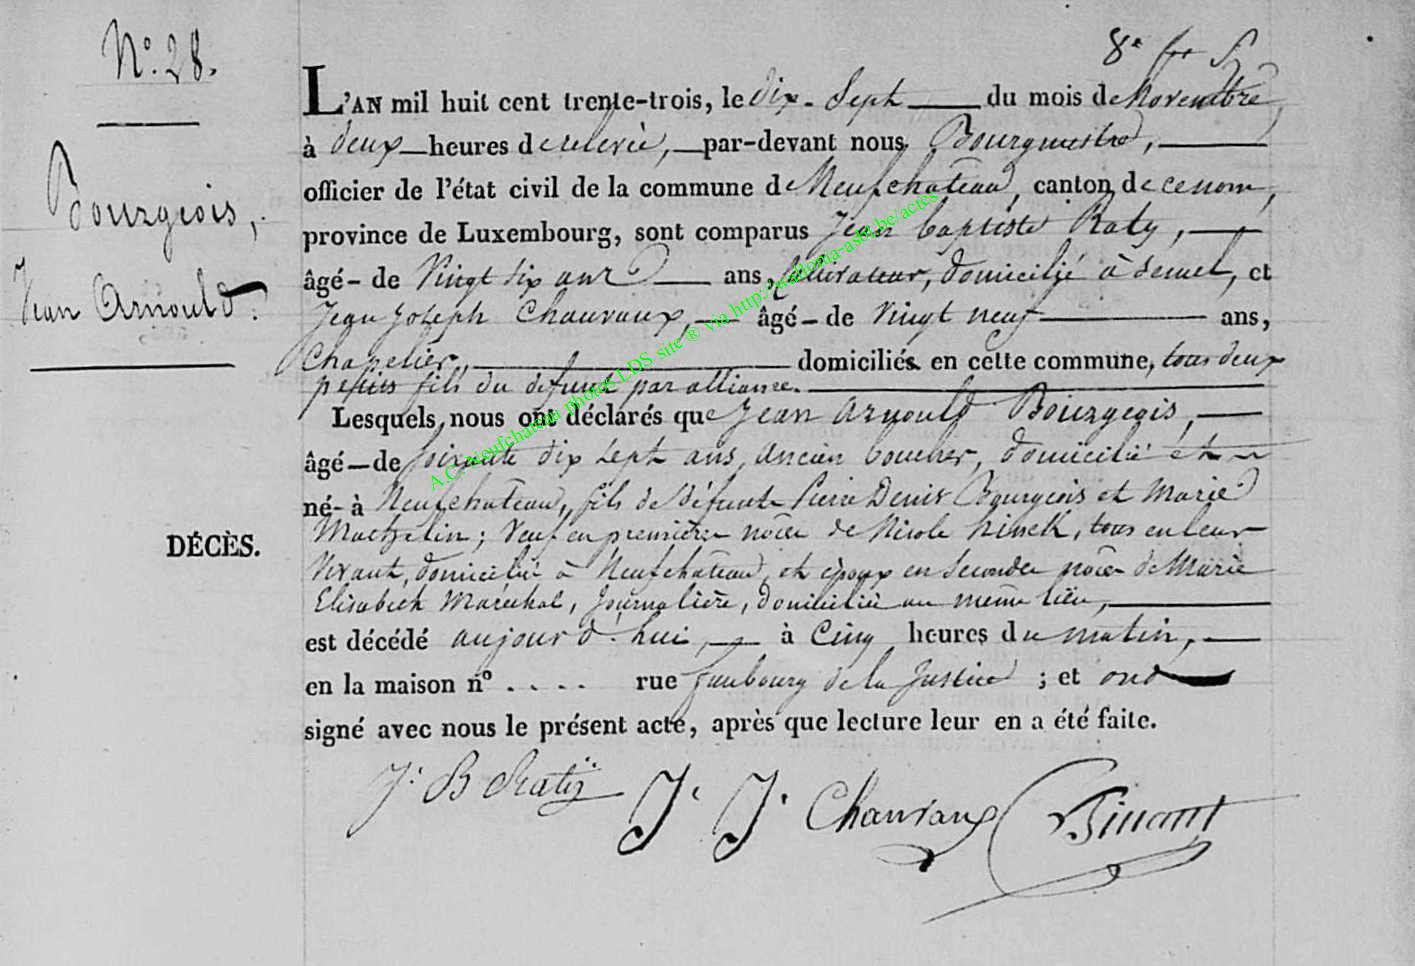 N.° 28.
Bourgeois,
Jean Arnould.
DÉCÈS.
8e
L'AN mil huit cent trente-trois, le dix-sept du mois de Novembre,
à deux heures de relevée, par-devant nous Bourgmestre,
officier de l'état civil de la commune de Neufchateau, canton de ce nom,
province de Luxembourg, sont comparus Jean baptiste Raty,
âgé- de Vingt six ans ans, Cultivateur, domicilié à Semel, et
Jean Joseph Chauvaux, âgé - de Vingt neuf ans,
Chapelier, domiciliés en cette commune, tous deux
petits fils du défunt par alliance.
Lesquels, nous ont déclarés que Jean Arnould Bourgeois,
âgé — de soixante dix sept ans, ancien boucher, domicilié et
né- à Neufchateau, fils de défunts Pierre Denis Bourgeois et Marie
; Veuf en premières noces de Nicole Ninck, tous en leur
Vivant, domicilié à Neufchateau, et époux en secondes noces de Marie
Elisabeth Maréchal, Journalière, domiciliée au même lieu,
est décédé aujourd'hui, à Cinq heures du matin,
en la maison n° . . . . rue faubourg de la Justice ; et ont
signé avec nous le présent acte, après que lecture leur en a été faite.
J. B Ratÿ J. J. Chauvaux Binant
A.C. Neufchateau photos LDS site ® via http://wallonia-asbl.be/actes